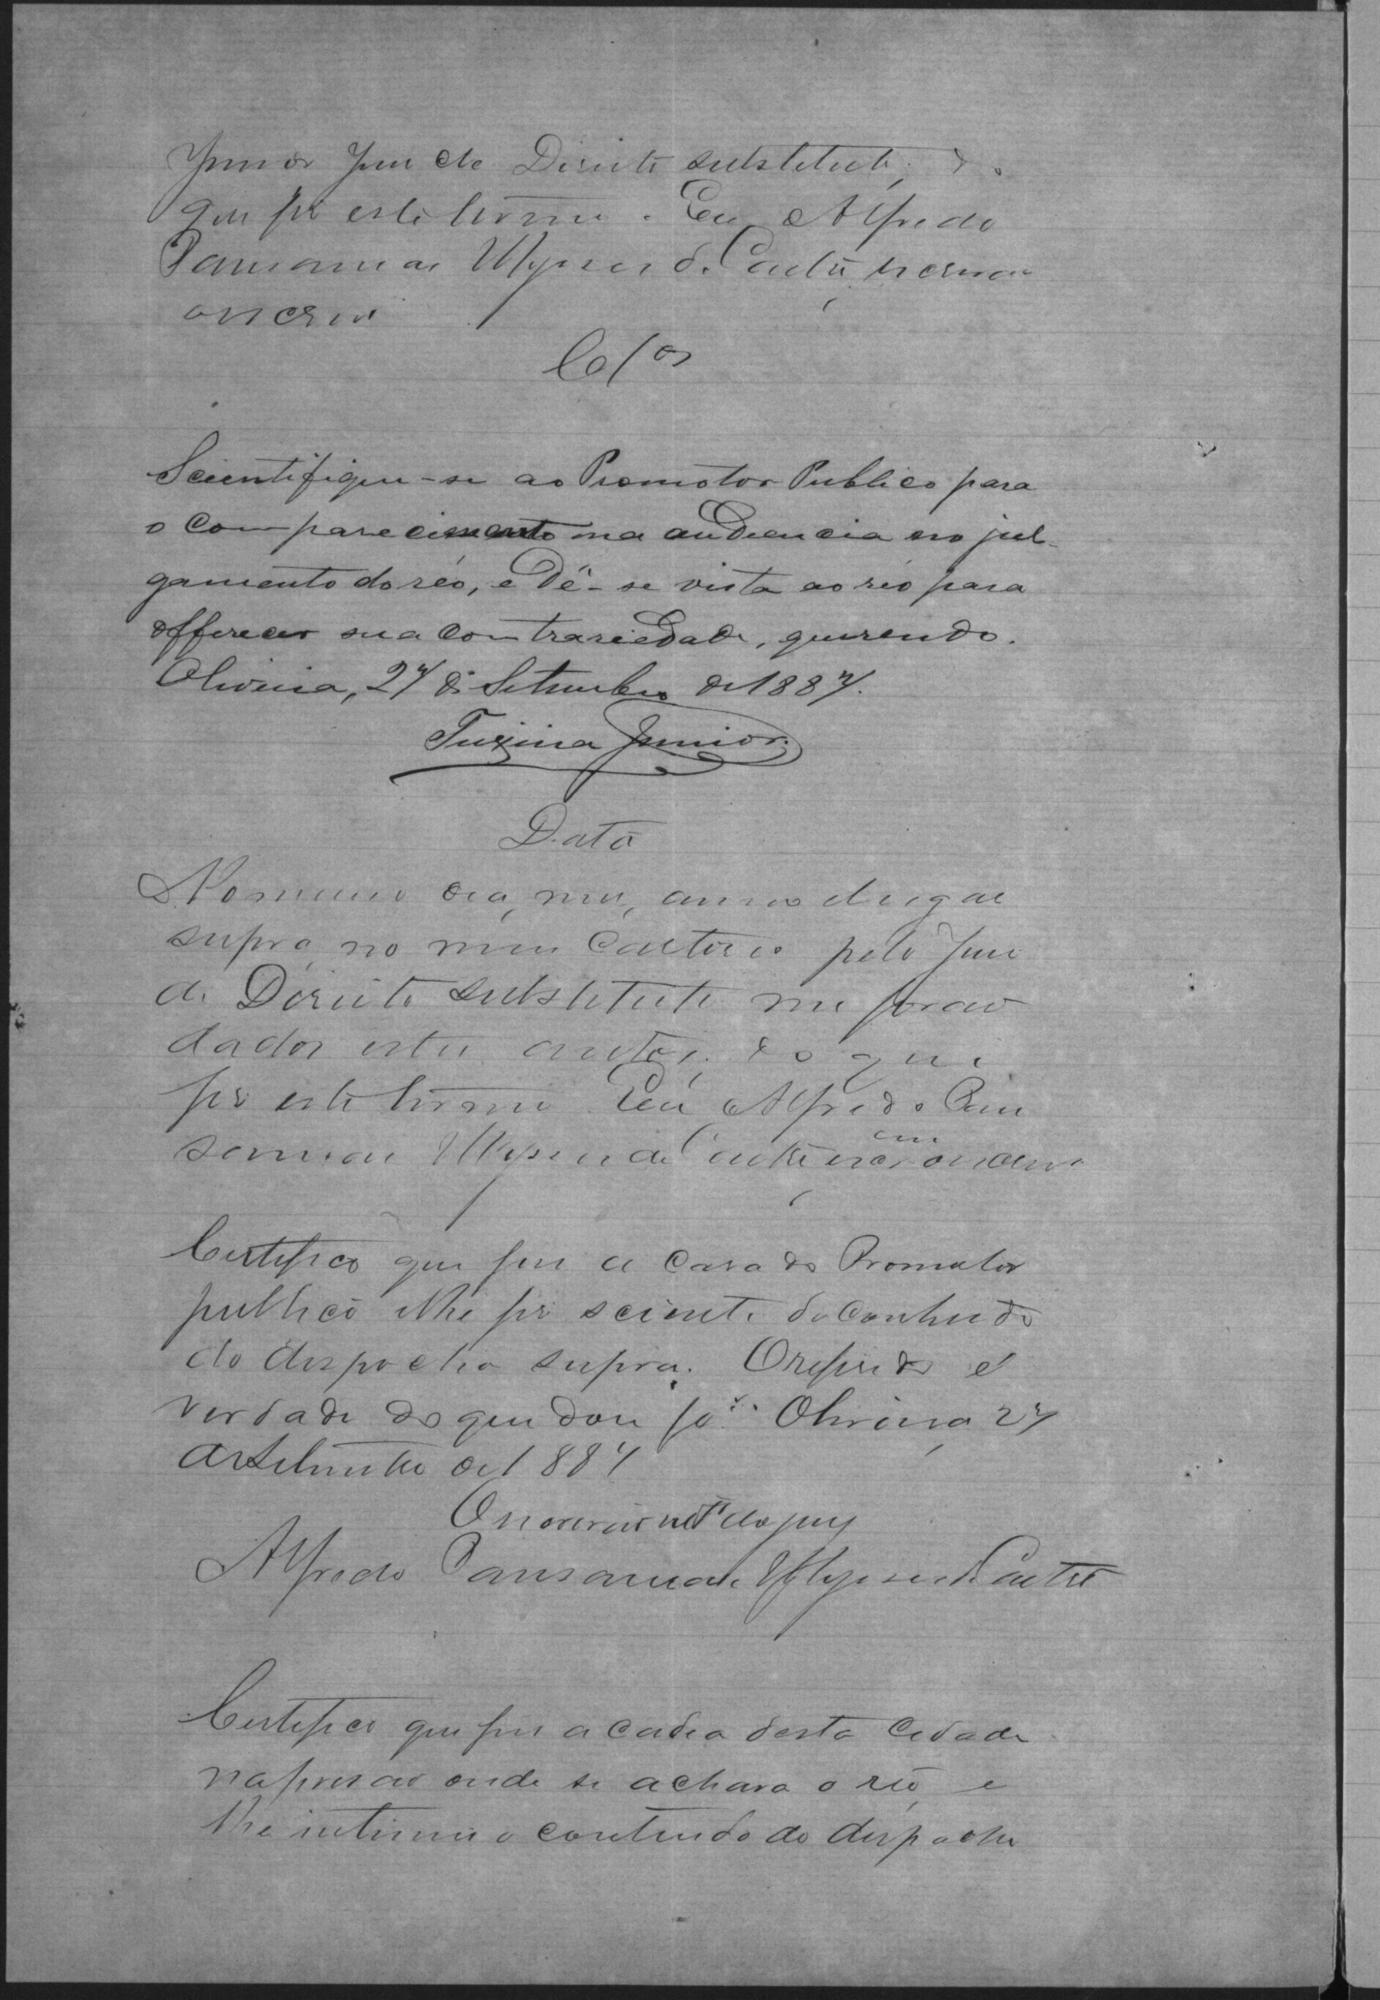 Junior Juiz de Direito substituto, do
que fiz este termo. Eu Alfredo
Pausanias Ulysses de Castro, escrivão
escrevi
Clsos
Scientifique-se ao Promotor Publico para
o comparecimento na audiencia no jul-
gamento do réo, e Dê-se vista ao réo para
offerecer sua contrariedade, querendo.
Oliveira, 27 de Setembro de 1887.
Junior.
Data
No mesmo dia, mez, anno e lugar
supra, no meu Cartorio pelo Juiz
de Direito substituto me forão
dados estes autos, do que
fiz este termo. Eu, Alfredo Pau
sanias Ulysses de Castro
Certifico que fui a casa do Promotor
publico e lhe fiz sciente do contheudo
do despacho supra. O referido é
verdade do que dou fé. Oliveira 27
de Setembro de 1887
O escrivão do jury
Alfredo Pausanias Ulysses de Castro
Certifico que fui a cadea desta Cidade
na prisão onde se achava o réo, e
lhe intimei o conteudo do despacho